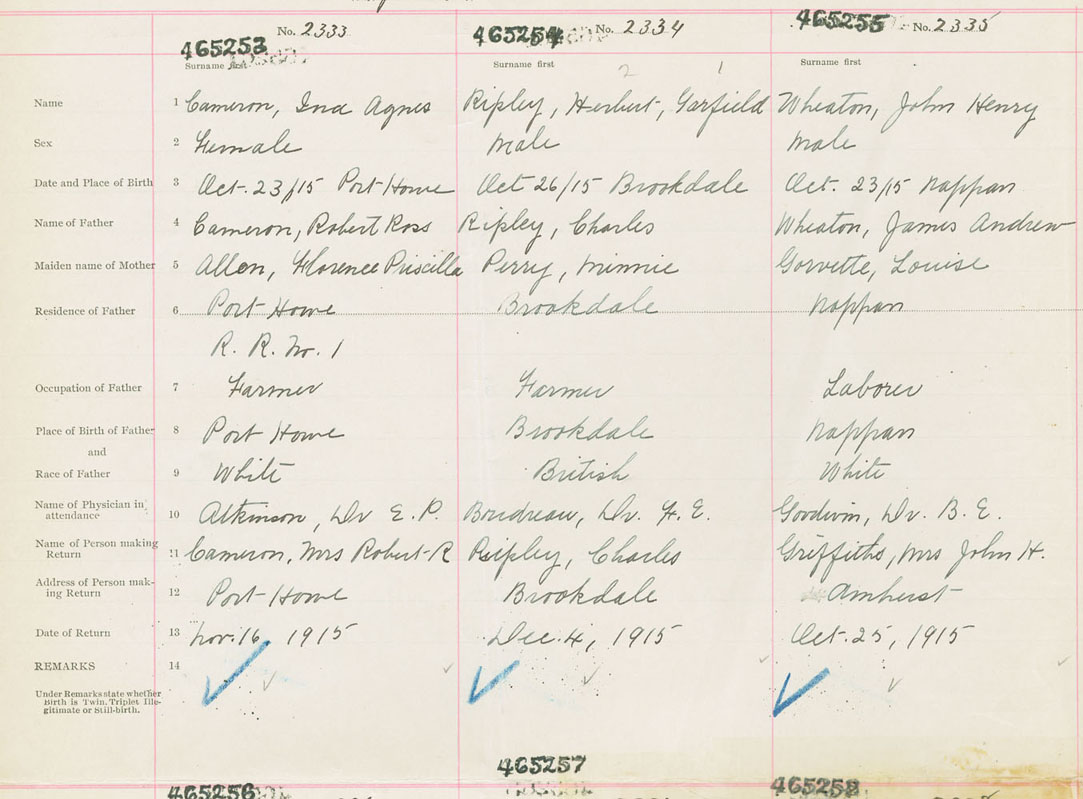 No. 2333 No. 2334 No. 2335
465253 465254 465255
Surname first Surname first Surname first
2 1
Name 1 Cameron, Ina Agnes Ripley, Herbert, Garfield Wheaton, John Henry
Sex 2 Female Male Male
Date and Place of Birth 3 Oct. 23/15 Port Howe Oct 26/15 Brookdale Oct. 23/15 Nappan
Name of Father 4 Cameron, Robert Ross Ripley, Charles Wheaton, James Andrew
Maiden name of Mother 5 Allen, Florence Priscilla Perry, Minnie Gorvette, Louise
Residence of Father 6 Port Howe Brookdale Nappan
R. R. No. 1
Occupation of Father 7 Farmer Farmer Laborer
Place of Birth of Father 8 Port Howe Brookdale Nappan
and
Race of Father 9 White British White
Name of Physician in
attendance 10 Atkinson, Dr E. P. Boudreau, Dr. F. E. Goodwin, Dr. B. E.
Name of Person making
Return 11 Cameron, Mrs Robert R Ripley, Charles Griffiths, Mrs John H.
Address of Person mak-
ing Return 12 Port Howe Brookdale Amherst
Date of Return 13 Nov. 16, 1915 Dec. 4, 1915 Oct. 25, 1915
REMARKS 14
Under Remarks state whether
Birth is Twin. Triplet Ille-
gitimate or Still-birth.
465257
465256 465258